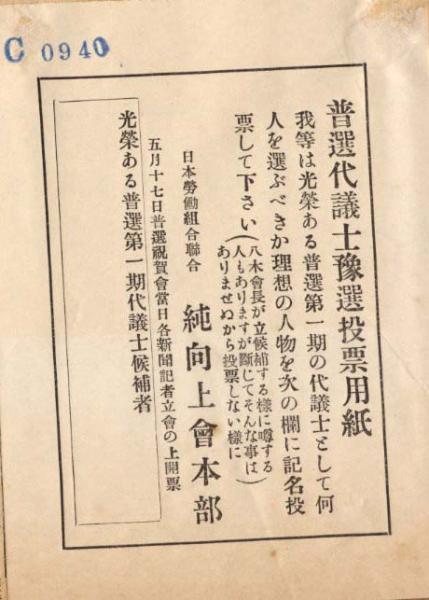 C 0940
普選代議士豫選投票用紙
我等は光榮ある普選第一期の代議士として何
人を選ぶべきか理想の人物を次の欄に記名投
票して下さい(八木會長が立候補する樣に噂する
人もありますが斷じてそんな事は
ありませぬから投票しない樣に)
日本勞働組合聯合
純向上會本部
五月十七日普選祝賀會當日各新聞記者立會の上開票
光榮ある普選第一期代議士候補者